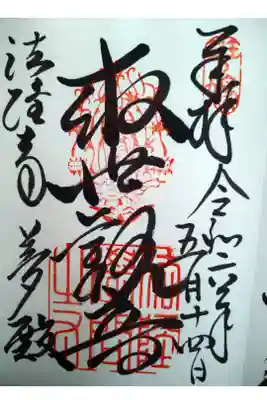 奉拝 令和六年
五月十四日
救世観音
法隆寺 夢殿